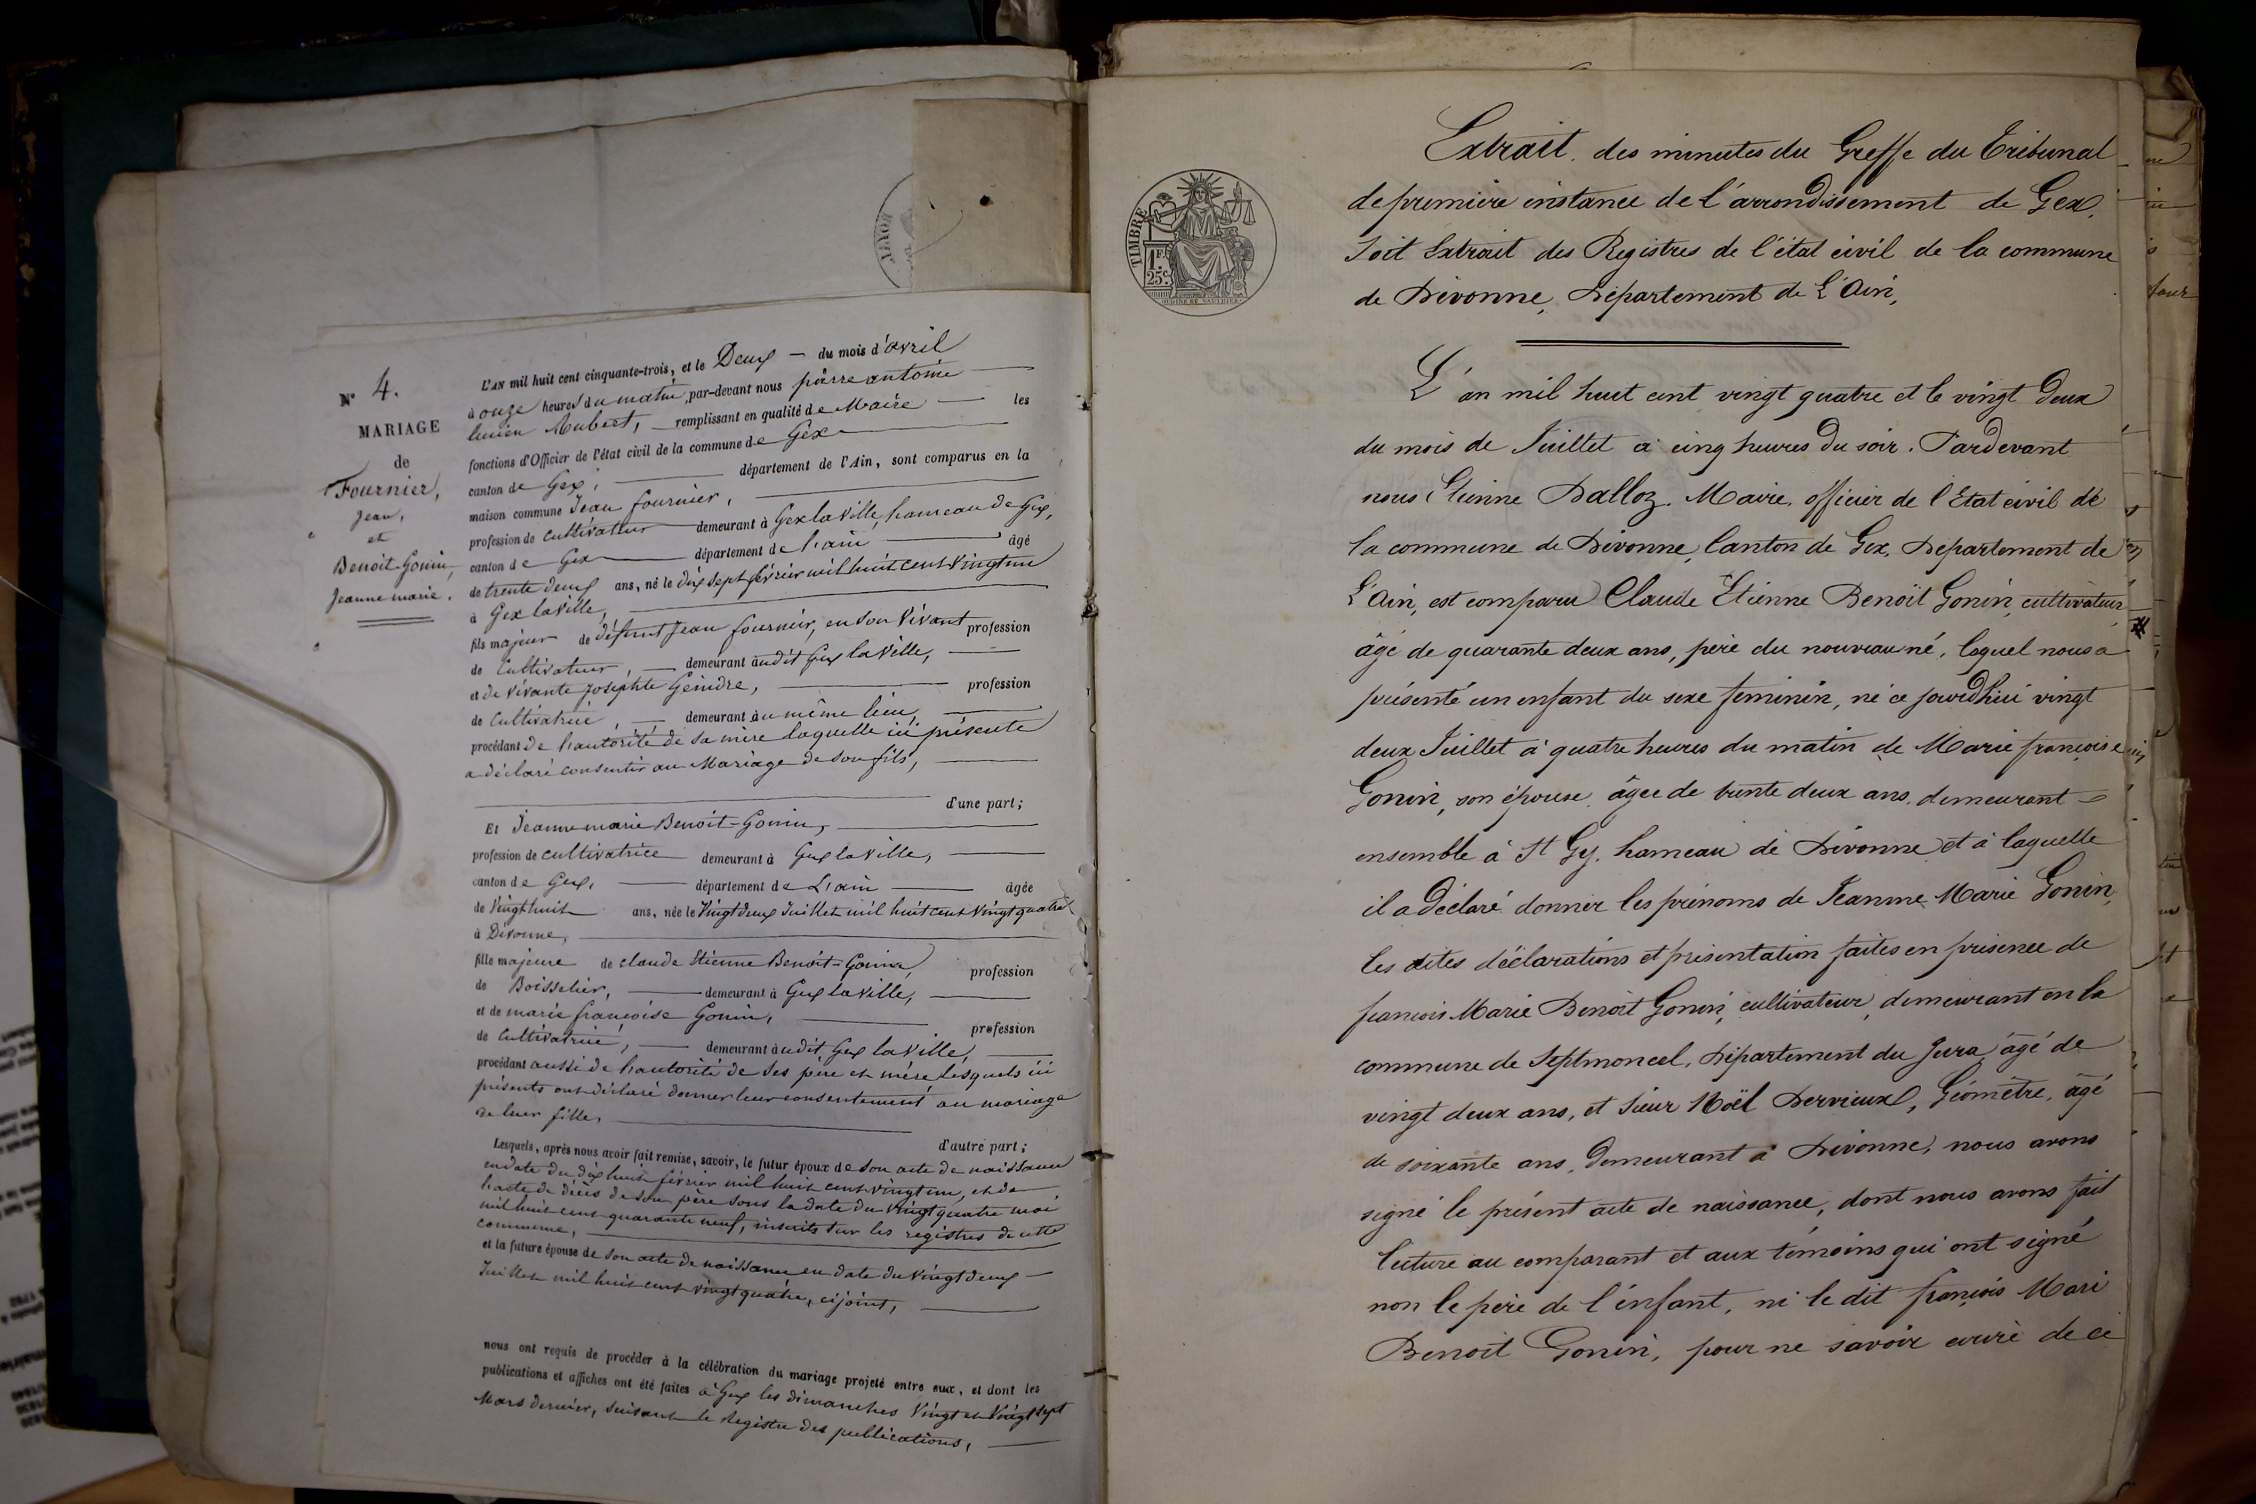 N° 4.
MARIAGE
de
Fournier,
Jean,
et
Benoit-Gonin,
Jeanne marie.
L'AN mil huit cent cinquante-trois, et le Deux — du mois d'avril
à onze heures du matin, par-devant nous pierre antoine
lucien Aubert, remplissant en qualité de Maire — les
fonctions d'Officier de l'état civil de la commune de Gex
canton de Gex, département de l'Ain, sont comparus en la
maison commune Jean fournier,
profession de cultivateur demeurant à Gex la Ville, hameau de Gex,
canton de Gex département de l'ain âgé
de trente deux ans, né le dix sept février mil huit cent vingt un
à Gex la Ville,
fils majeur de défunt Jean fournier, en son Vivant profession
de Cultivateur, demeurant audit Gex la Ville,
et de vivante Josephte Geindre, profession
de Cultivatrice, demeurant au même lieu,
procédant de l'autorité de sa mère laquelle ici présente
a déclaré consentir au Mariage de son fils,
d'une part;
Et Jeanne marie Benoit-Gonin,
profession de cultivatrice demeurant à Gex la Ville,
canton de Gex, département de L'ain âgée
de Vingt huit ans, née le Vingt deux Juillet mil huit cent Vingt quatre
à Divonne,
fille majeure de claude Etienne Benoit-Gonin, profession
de Boisselier, demeurant à Gex la Ville,
et de marie françoise Gonin, profession
de Cultivatrice, demeurant audit Gex la Ville,
procédant aussi de l'autorité de ses père et mère lesquels ici
présents ont déclaré donner leur consentement au mariage
de leur fille,
d'autre part;
Lesquels, après nous avoir fait remise, savoir, le futur époux de son acte de naissance
en date du dix huit février mil huit cent vingt un, et de
l'acte de décès de son père sous la date du vingt quatre mai
mil huit cent quarante neuf, inscrits sur les registres de cette
commune,
et la future épouse de son acte de naissance en date du vingt deux
Juillet mil huit cent vingt quatre, ci joint,
nous ont requis de procéder à la célébration du mariage projeté entre eux, et dont les
publications et affiches ont été faites à Gex les dimanches Vingt et Vingt sept
Mars dernier, suivant le Registre des publications,
TIMBRE
1 F.
25 c.
Extrait des minutes du Greffe du Tribunal
de première instance de l'arrondissement de Gex,
Soit Extrait des Registres de l'état civil de la commune
de Divonne, Département de L'Ain,
L'an mil huit cent vingt quatre et le vingt Deux
du mois de Juillet à cinq heures du soir. Pardevant
nous Etienne Dalloz. Maire, officier de l'Etat civil de
la commune de Divonne, Canton de Gex, Département de
L'Ain, est comparu Claude Etienne Benoit Gonin, cultivateur,
âgé de quarante deux ans, père du nouveau né, lequel nous a
présenté un enfant du sexe féminin, né ce jourd'hui vingt
deux Juillet à quatre heures du matin de Marie françoise
Gonin, son épouse, âgée de trente deux ans, demeurant
ensemble à St Gy, hameau de Divonne et à laquelle
il a Déclaré donner les prénoms de Jeanne Marie Gonin,
les dites déclarations et présentation faites en présence de
françois Marie Benoit Gonin, cultivateur, demeurant en la
commune de Septmoncel, Département du Jura, âgé de
vingt deux ans, et Sieur Noël Dervieux, Géomètre, âgé
de soixante ans, demeurant à Divonne, nous avons
signé le présent acte de naissance, dont nous avons fait
lecture au comparant et aux témoins qui ont signé
non le père de l'enfant, ni le dit françois Mari
Benoit Gonin, pour ne savoir écrire de ce